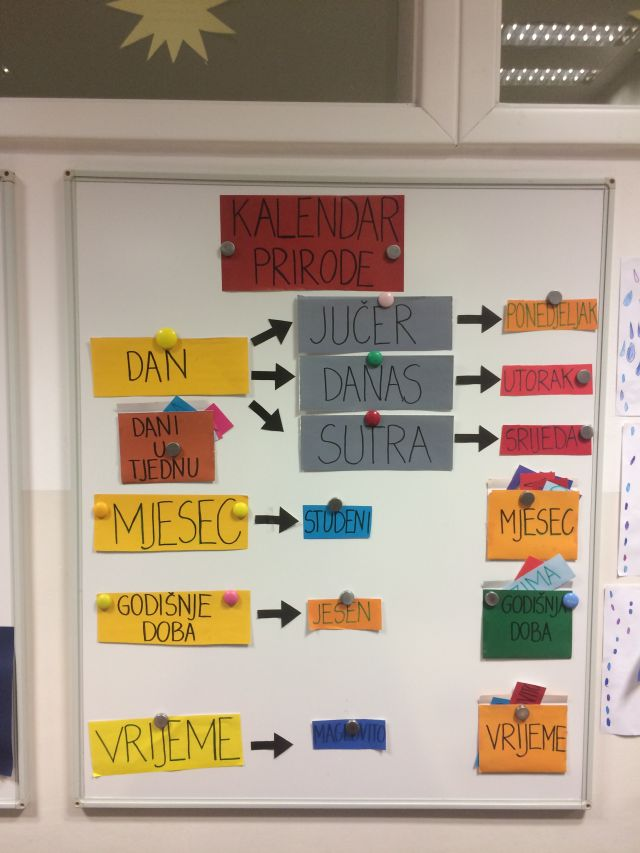 KALENDAR
PRIRODE
DAN
JUČER
PONEDJELJAK
DANAS
UTORAK
SUTRA
SRIJEDA
DANI
U
TJEDNU
MJESEC
STUDENI
MJESEC
GODIŠNJE
DOBA
JESEN
ZIMA
GODIŠNJA
DOBA
VRIJEME
MAGLOVITO
VRIJEME